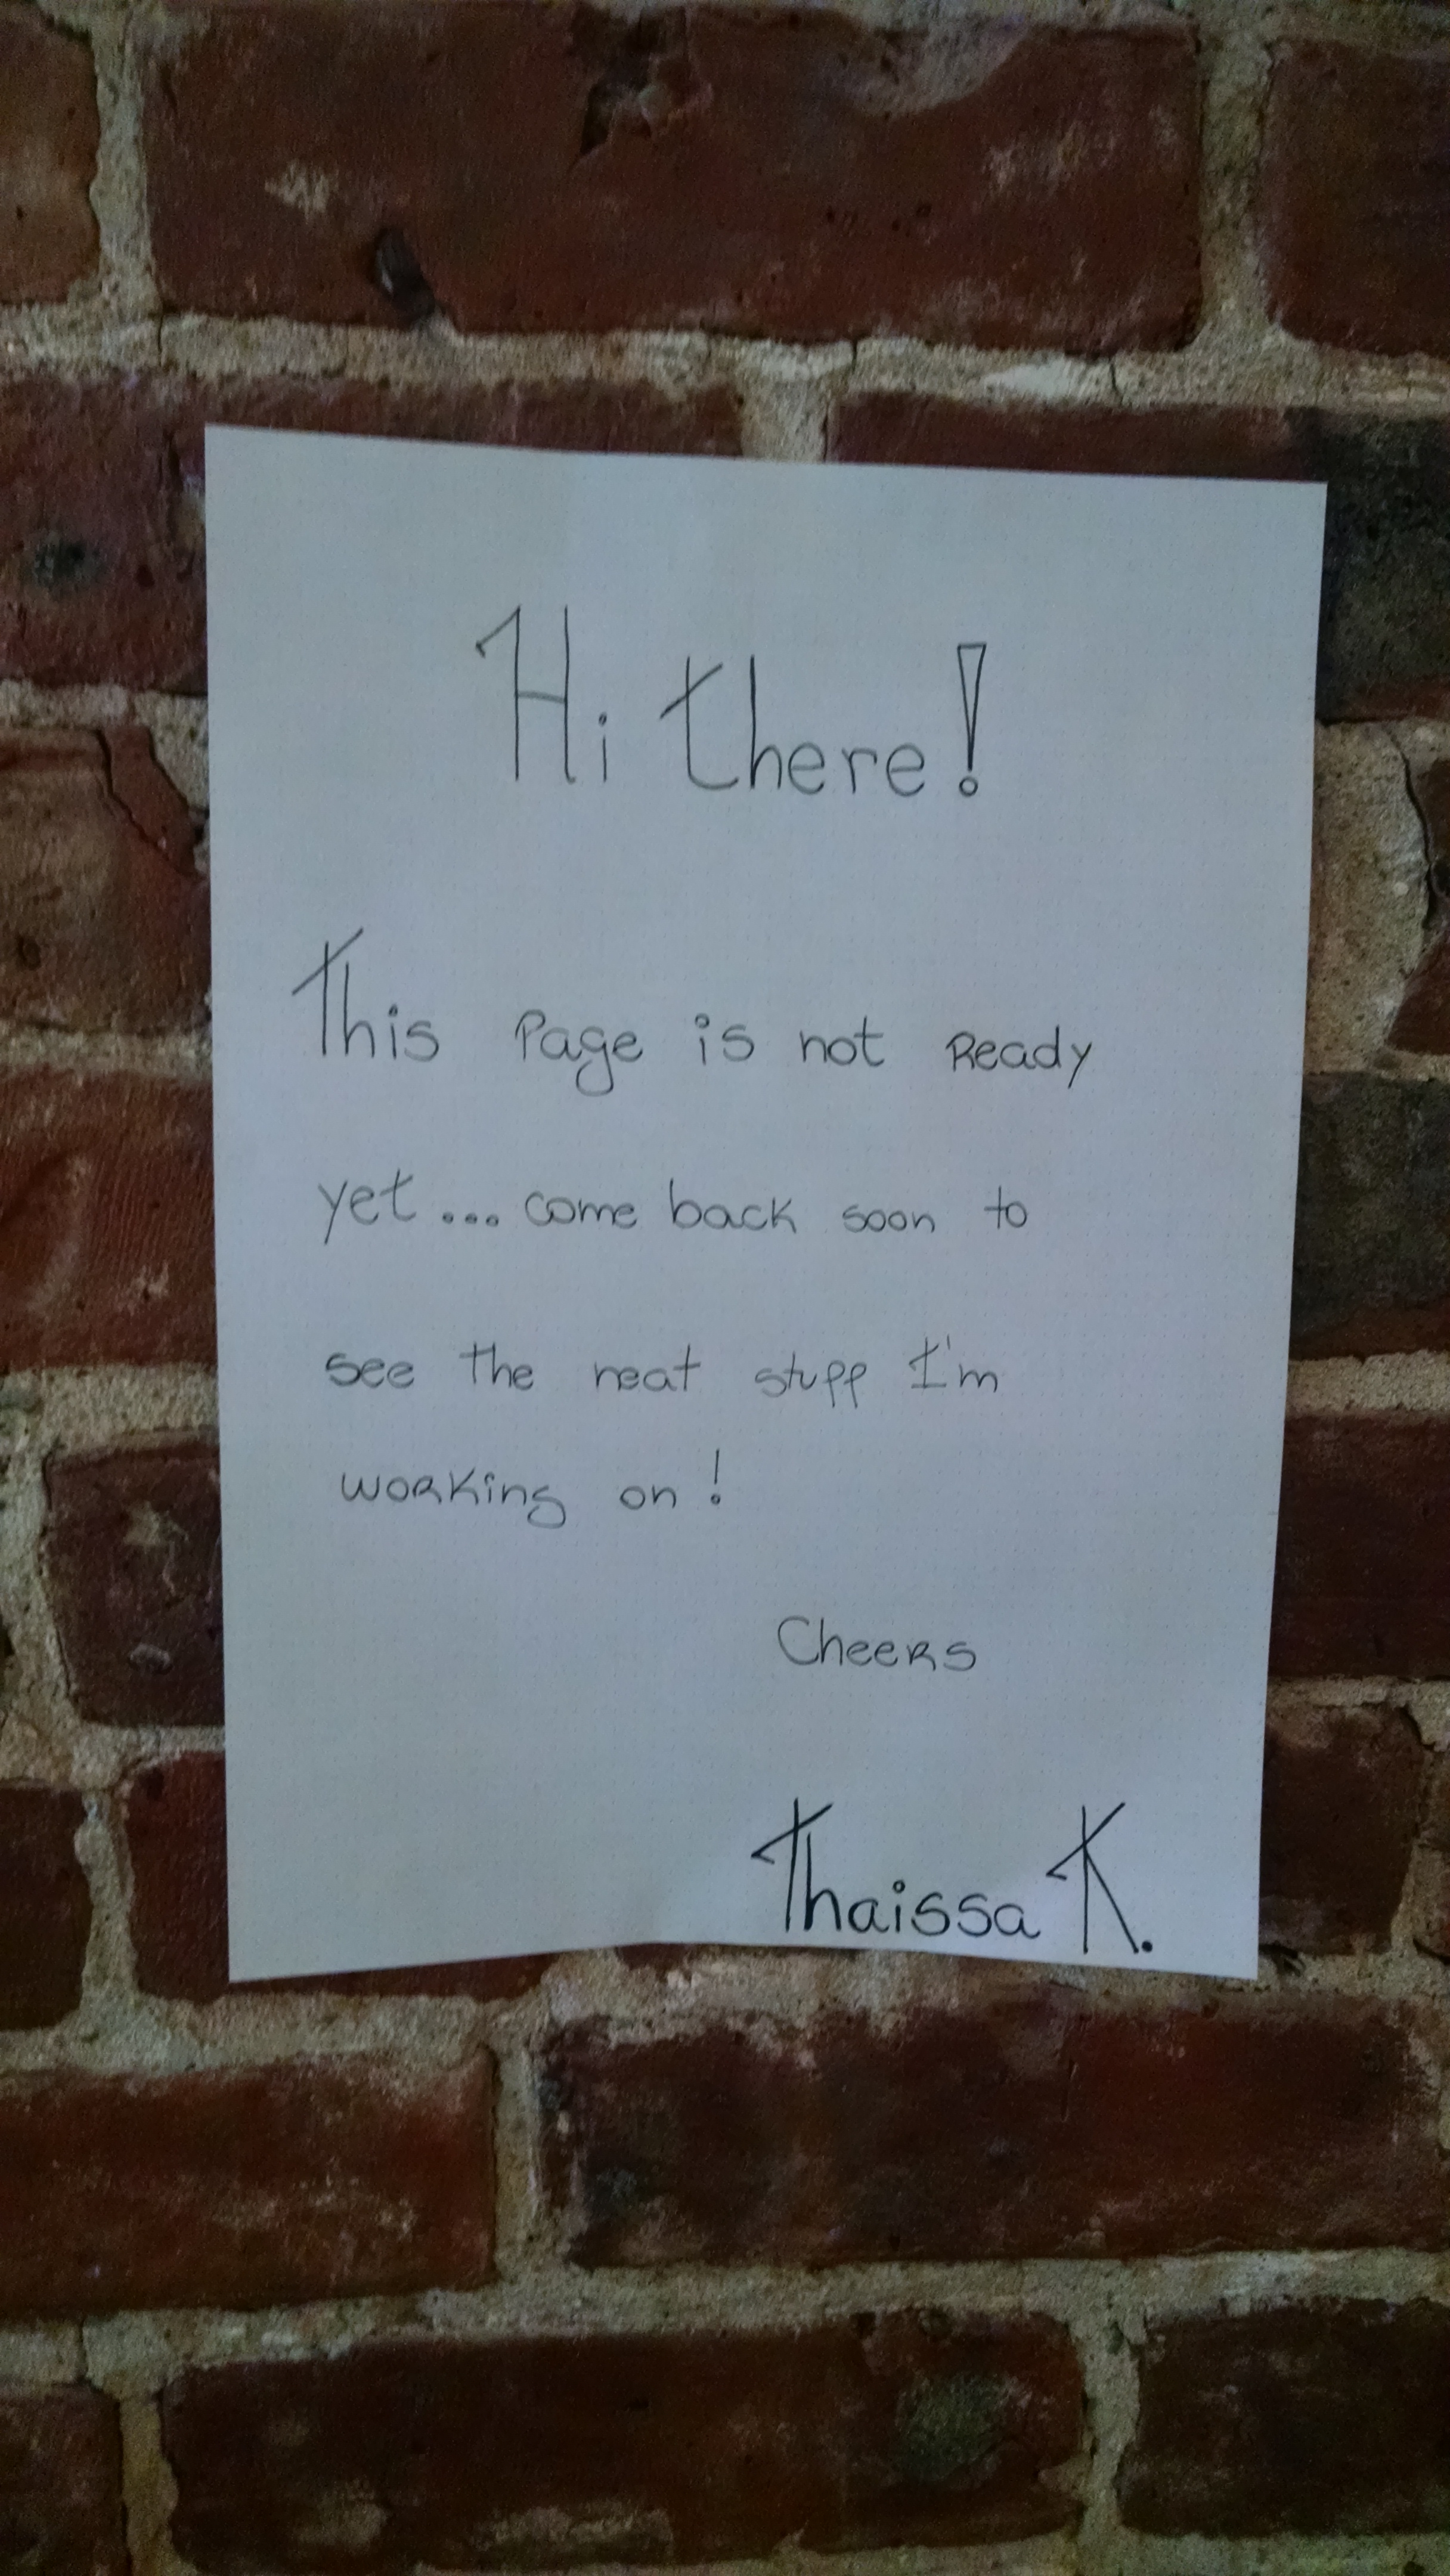 Hi there!
This Page is not Ready
yet... come back soon to
see the neat stuff I'm
working on!
Cheers
Thaissa K.